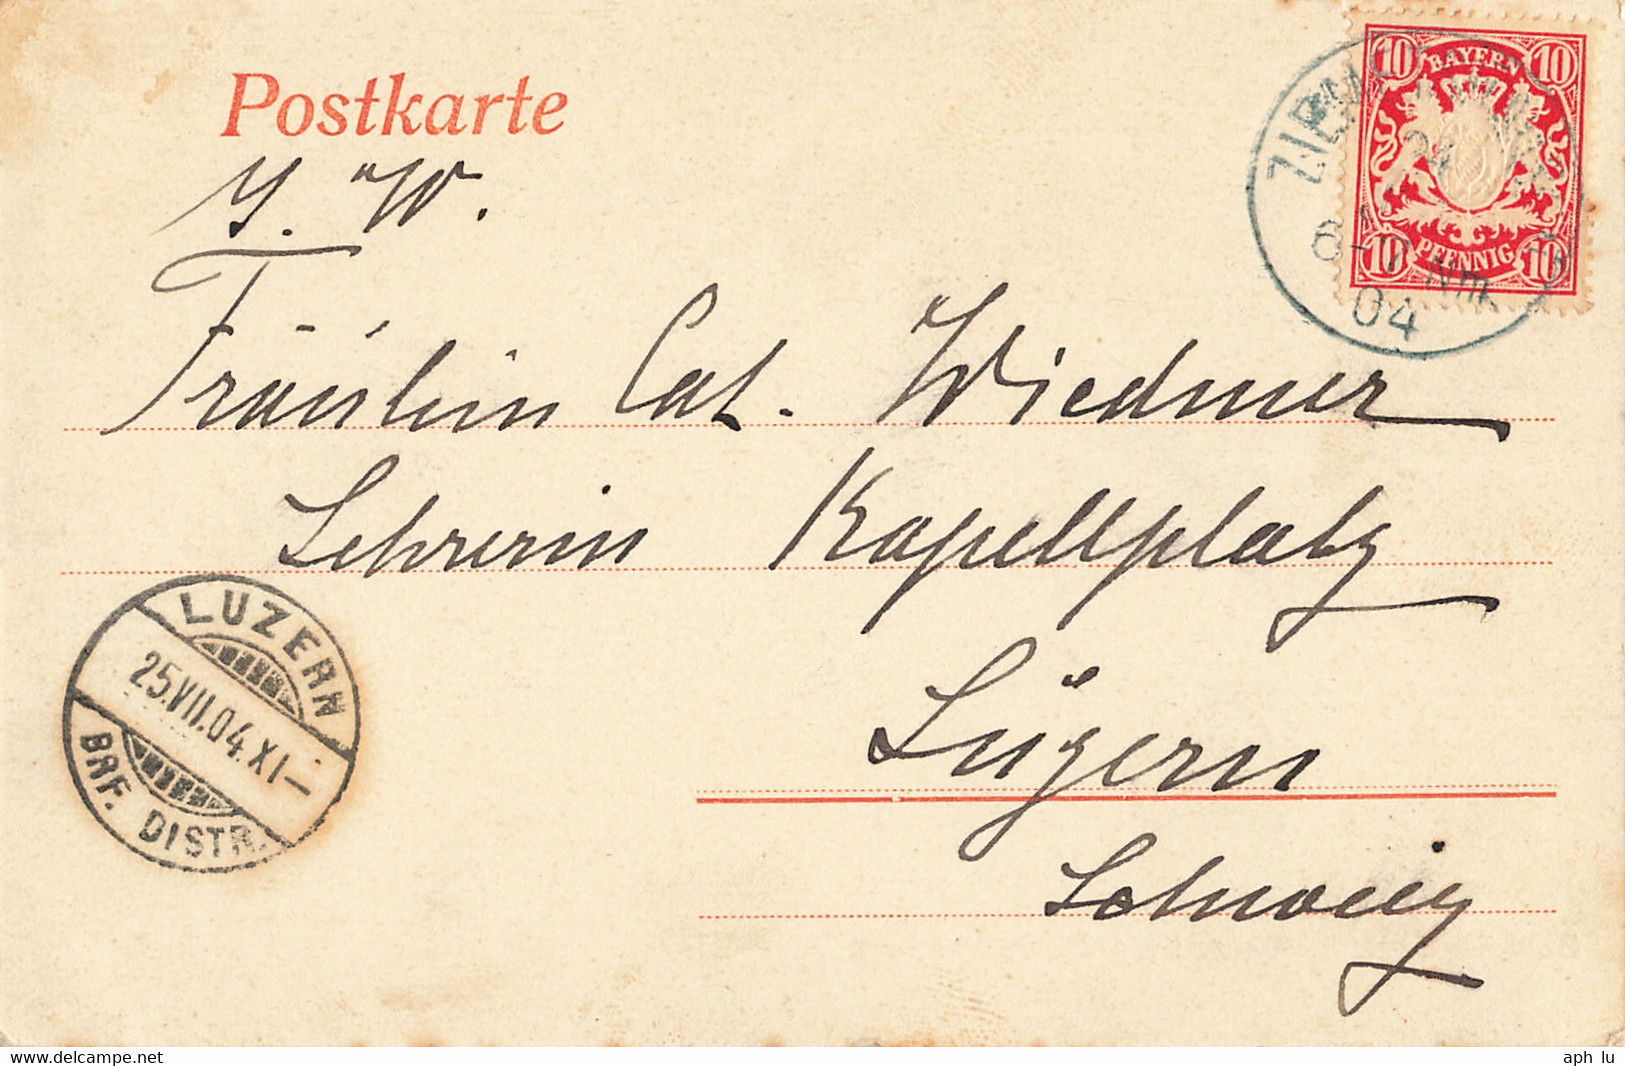 Postkarte
BAYERN
10 10
10 PFENNIG 10
24
6-7 Nm.
04
Fräulein Cat. Wiedmer
Lehrerin Kapellplatz
LUZERN
25.VII.04.XI-
BRF. DISTR.
Luzern
Schweiz
www.delcampe.net
aph lu